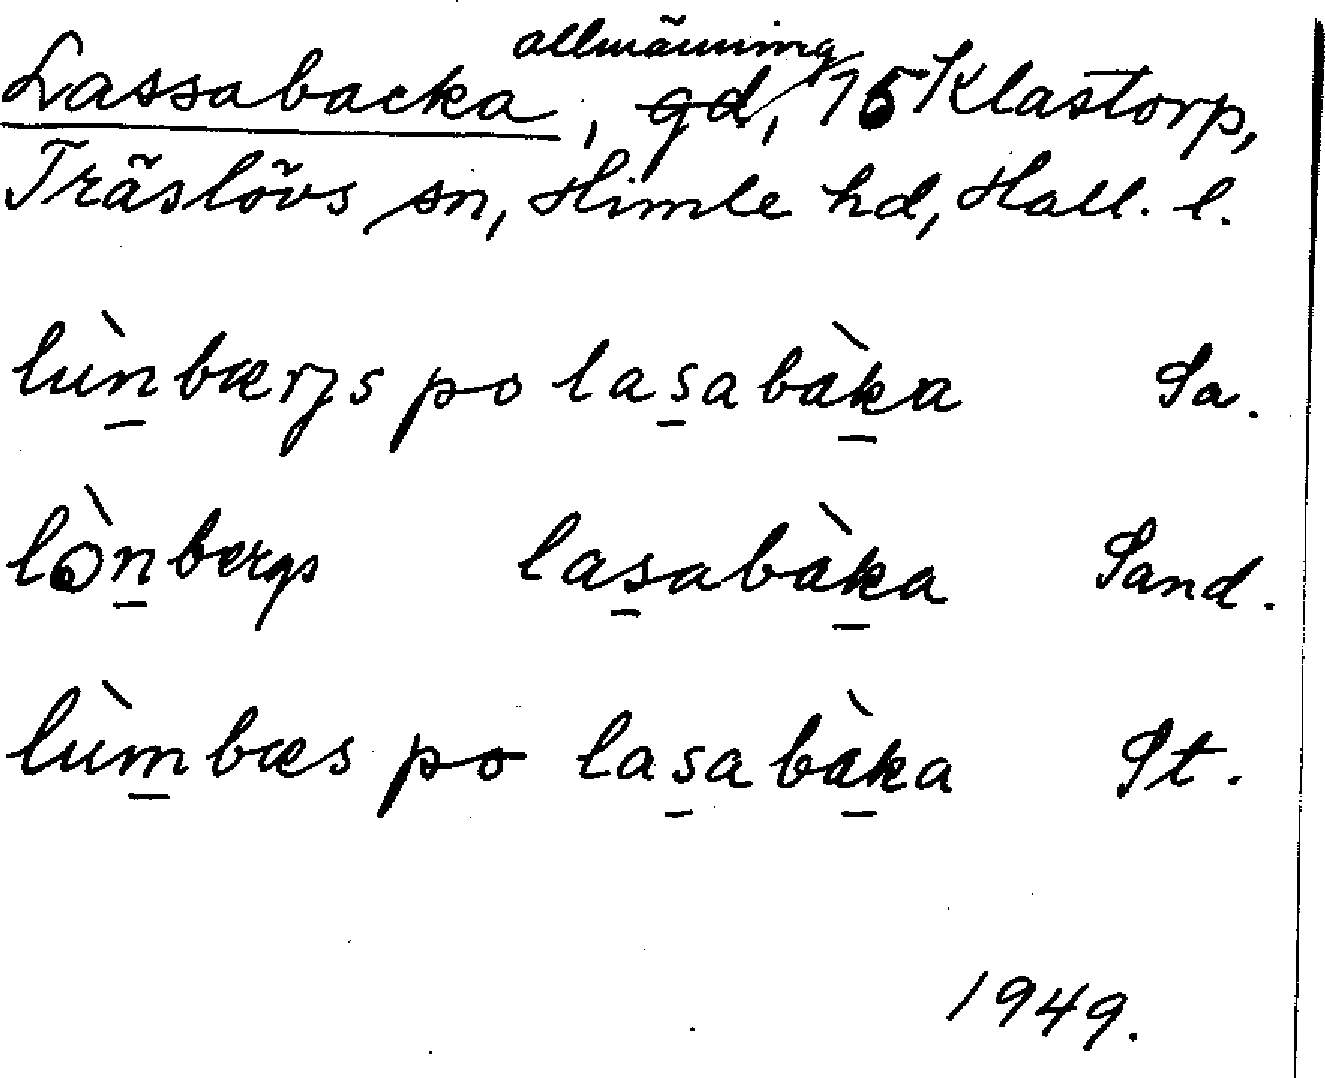 allmänning
Lassabacka, gd, 15 Klastorp,
Träslövs sn, Himle hd, Hall. l.
lùn̲bærjs po las̲abàk̲a Sa.
lòn̲bergs las̲abàk̲a Sand.
lùm̲bæs po las̲abàk̲a St.
1949.